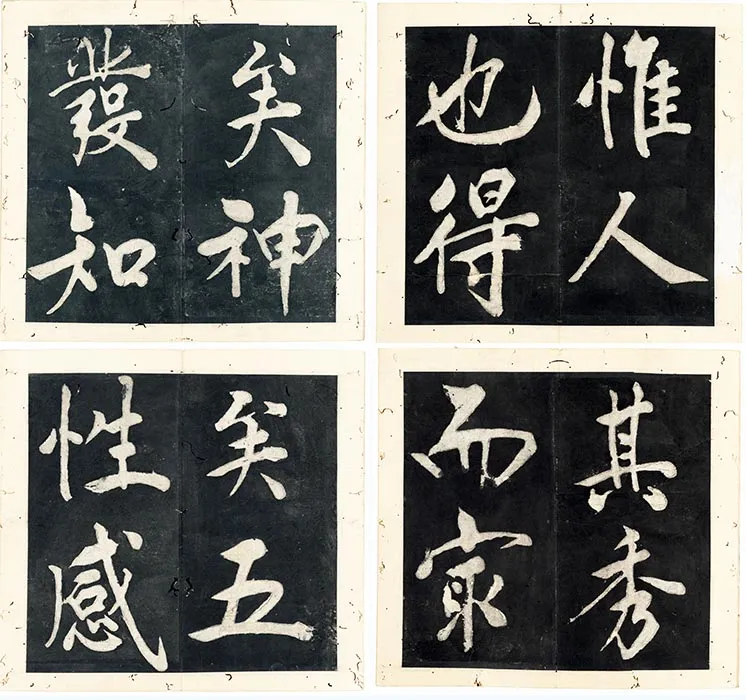 惟人
也得
其秀
而㝡
矣神
發知
矣五
性感